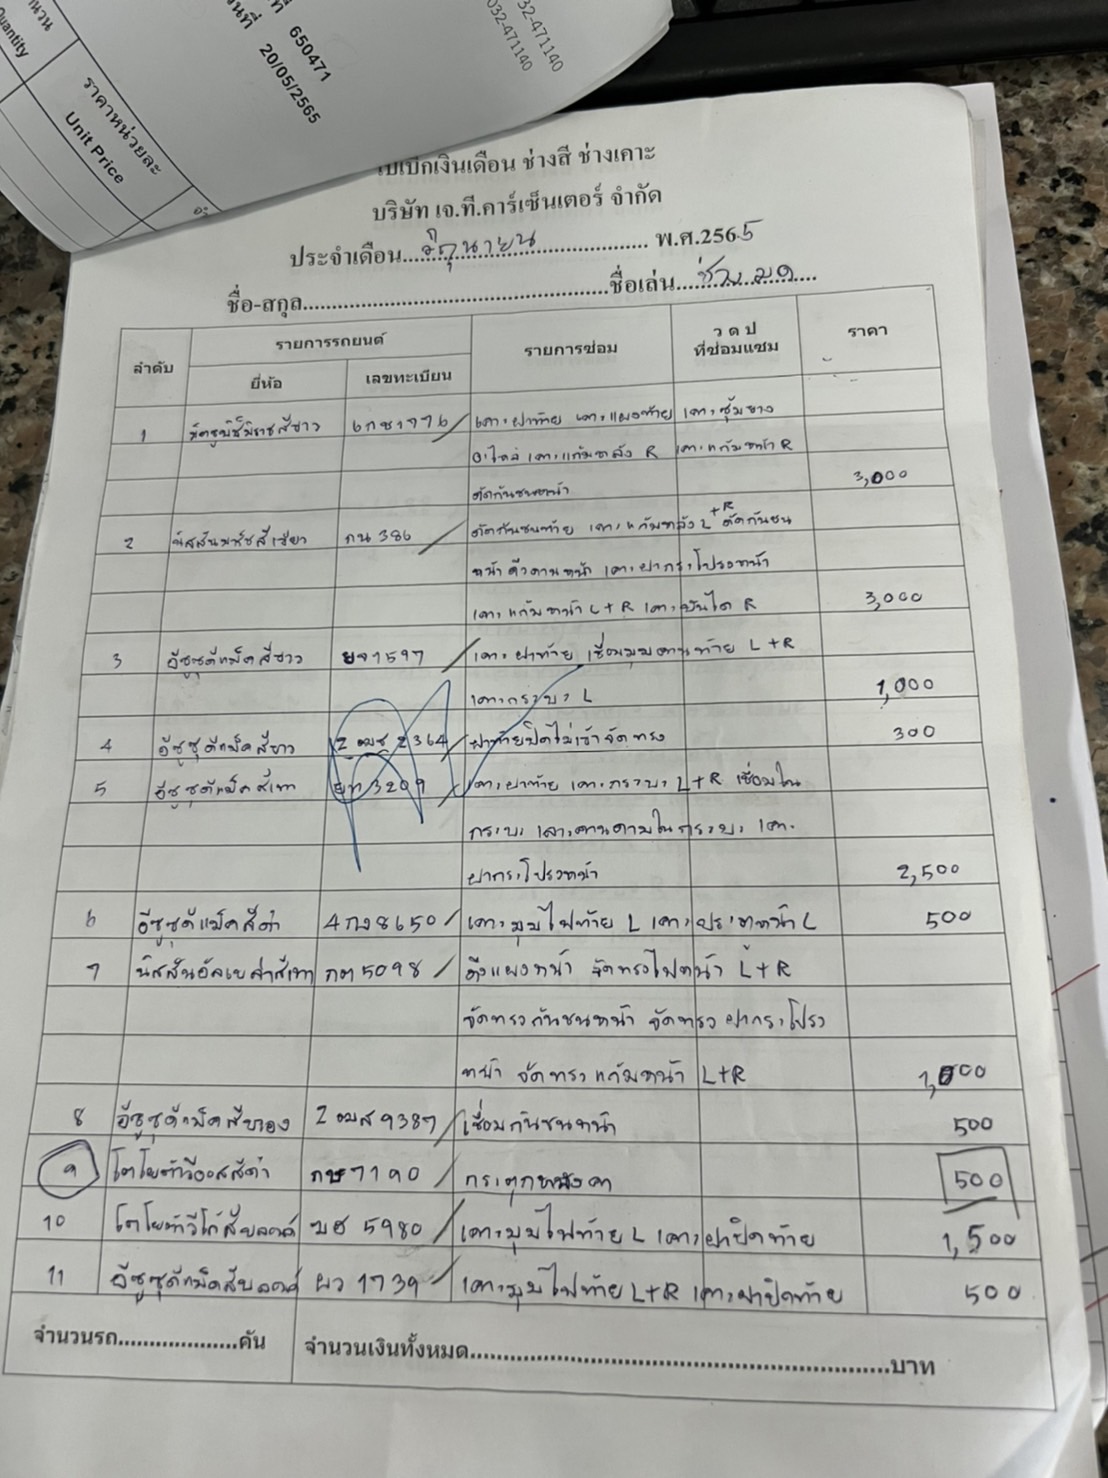 จำนวน
Quantity
ราคาหน่วยละ
Unit Price
ที่ 650471
วันที่ 20/05/2565
032-471140
032-471140
ใบเบิกเงินเดือน ช่างสี ช่างเคาะ
บริษัท เจ.ที.คาร์เซ็นเตอร์ จำกัด
ประจำเดือน...มิถุนายน... พ.ศ.2565
ชื่อ-สกุล...ชื่อเล่น...ช่างมด...
ลำดับ รายการรถยนต์ รายการซ่อม ว ด ป ที่ซ่อมแซม ราคา
ยี่ห้อ เลขทะเบียน
1 มิตซูบิชิมิราชสีขาว 6กช1776 / เคาะฝาท้าย เคาะแผงท้าย เคาะซุ้มยาง
อะไหล่ เคาะแก้มหลัง R เคาะแก้มหน้า R
ดัดกันชนหน้า 3,000
2 นิสสันมาร์ชสีเขียว กน 386 / ดัดกันชนท้าย เคาะแก้มหลัง L+R ดัดกันชน
หน้า ดึงคานหน้า เคาะฝากระโปรงหน้า
เคาะแก้มหน้า L+R เคาะบันได R 3,000
3 อีซูซุดีแม็คสีขาว ยจ1597 / เคาะฝาท้าย เชื่อมมุมคานท้าย L+R
เคาะกระบะ L 1,000
4 อีซูซุดีแม็คสีขาว 2ฒช 2364 / ฝาท้ายปิดไม่เข้าจัดทรง 300
5 อีซูซุดีแม็คสีเทา ยท3209 / เคาะฝาท้าย เคาะกระบะ L+R เชื่อมใน
กระบะ เคาะคานดามในกระบะ เคาะ
ฝากระโปรงหน้า 2,500
6 อีซูซุดีแม็คสีดำ 4กง8650 / เคาะมุมไฟท้าย L เคาะประตูหน้า L 500
7 นิสสันอัลเมล่าสีเทา กต5098 / ดึงแผงหน้า จัดทรงไฟหน้า L+R
จัดทรงกันชนหน้า จัดทรงฝากระโปรง
หน้า จัดทรงแก้มหน้า L+R 1,000
8 อีซูซุดีแม็คสีทอง 2ฒส9387 / เชื่อมกันชนหน้า 500
9 โตโยต้าวีออสสีดำ กษ7190 / กระตุกหลังคา 500
10 โตโยต้าวีโก้สีบลอนด์ บฮ 5980 / เคาะมุมไฟท้าย L เคาะฝาปิดท้าย 1,500
11 อีซูซุดีแม็คสีบลอนด์ ผว 1739 / เคาะมุมไฟท้าย L+R เคาะฝาปิดท้าย 500
จำนวนรถ...คัน จำนวนเงินทั้งหมด...บาท